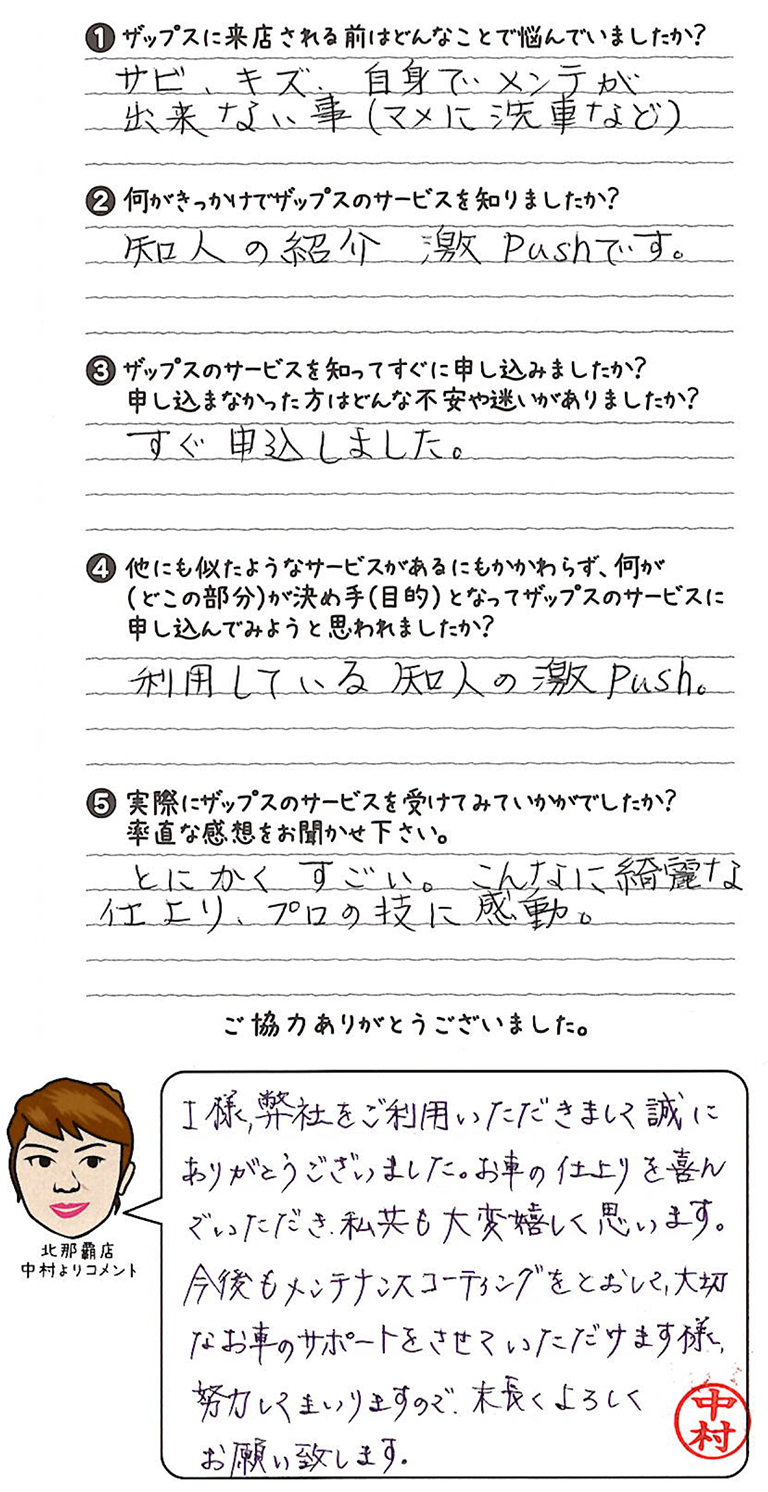 ❶ザップスに来店される前はどんなことで悩んでいましたか?
サビ、キズ、自身でメンテが
出来ない事(マメに洗車など)
❷何がきっかけでザップスのサービスを知りましたか?
知人の紹介 激Pushです。
❸ザップスのサービスを知ってすぐに申し込みましたか?
申し込まなかった方はどんな不安や迷いがありましたか?
すぐ申込しました。
❹他にも似たようなサービスがあるにもかかわらず、何が
(どこの部分)が決め手(目的)となってザップスのサービスに
申し込んでみようと思われましたか?
利用している知人の激Push。
❺実際にザップスのサービスを受けてみていかがでしたか?
率直な感想をお聞かせ下さい。
とにかくすごい。こんなに綺麗な
仕上り、プロの技に感動。
ご協力ありがとうございました。
I様,弊社をご利用いただきまして誠に
ありがとうございました。お車の仕上りを喜ん
でいただき、私共も大変嬉しく思います。
今後もメンテナンスコーティングをとおして、大切
なお車のサポートをさせていただけます様、
努力してまいりますので、末長くよろしく
お願い致します。
北那覇店
中村よりコメント
中村